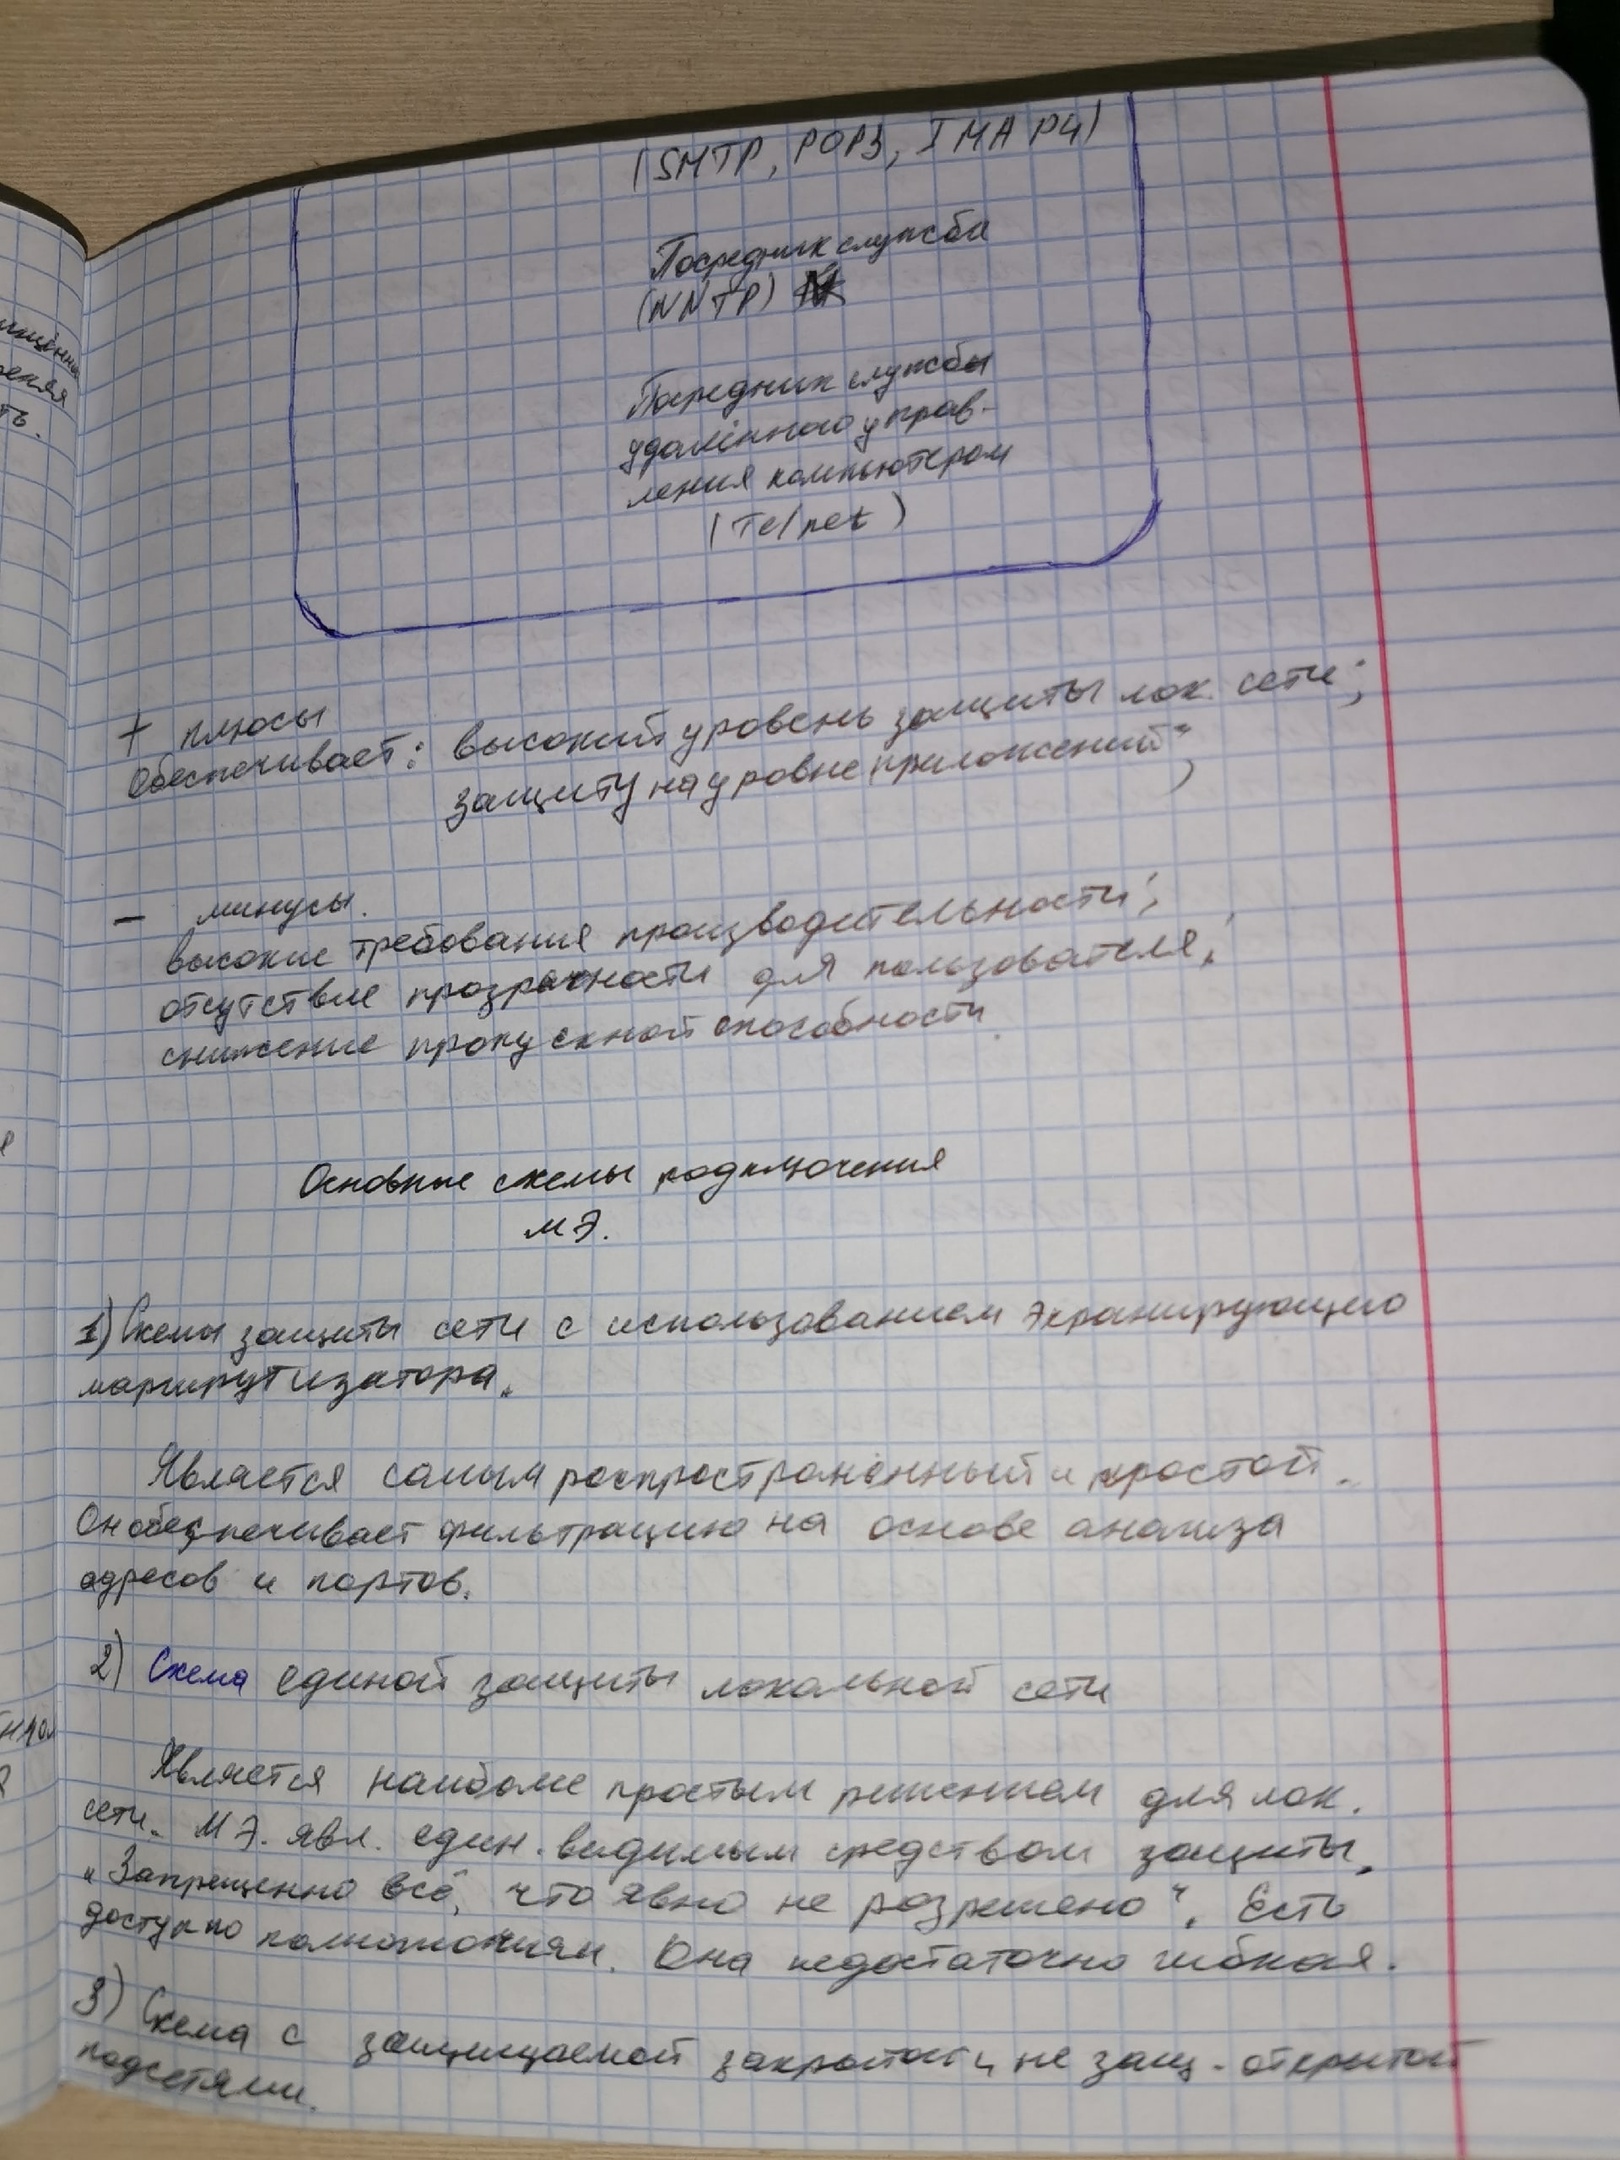 (SMTP, POP3, IMAP4)
Посредник службы
(NNTP)
Посредник службы
удалённого управ-
ления компьютером
(Telnet)
+ плюсы
Обеспечивает: высокий уровень защиты лок. сети;
защиту на уровне приложений;
- минусы.
высокие требования производительности;
отсутствие прозрачности для пользователя;
снижение пропускной способности.
Основные схемы подключения
МЭ.
1) Схемы защиты сети с использованием экранирующего
маршрутизатора.
Является самым распространённый и простой.
Он обеспечивает фильтрацию на основе анализа
адресов и портов.
2) Схема единой защиты локальной сети
Является наиболе простым решением для лок.
сети. МЭ. явл. един. видимым средством защиты.
"Запрещенно всё, что явно не разрешено". Есть
доступ по полномочиям. Она недостаточно гибкая.
3) Схема с защищаемой закрытой и не защ. открытой
подсетями.